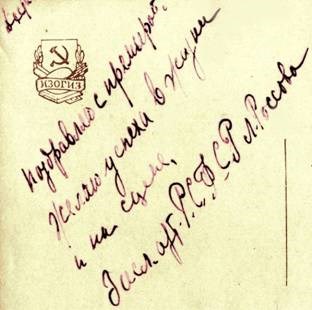 ИЗОГИЗ
поздравляю с премьерой.
Желаю успеха в жизни
и на сцене.
Засл. арт. РСФСР Л. Россова